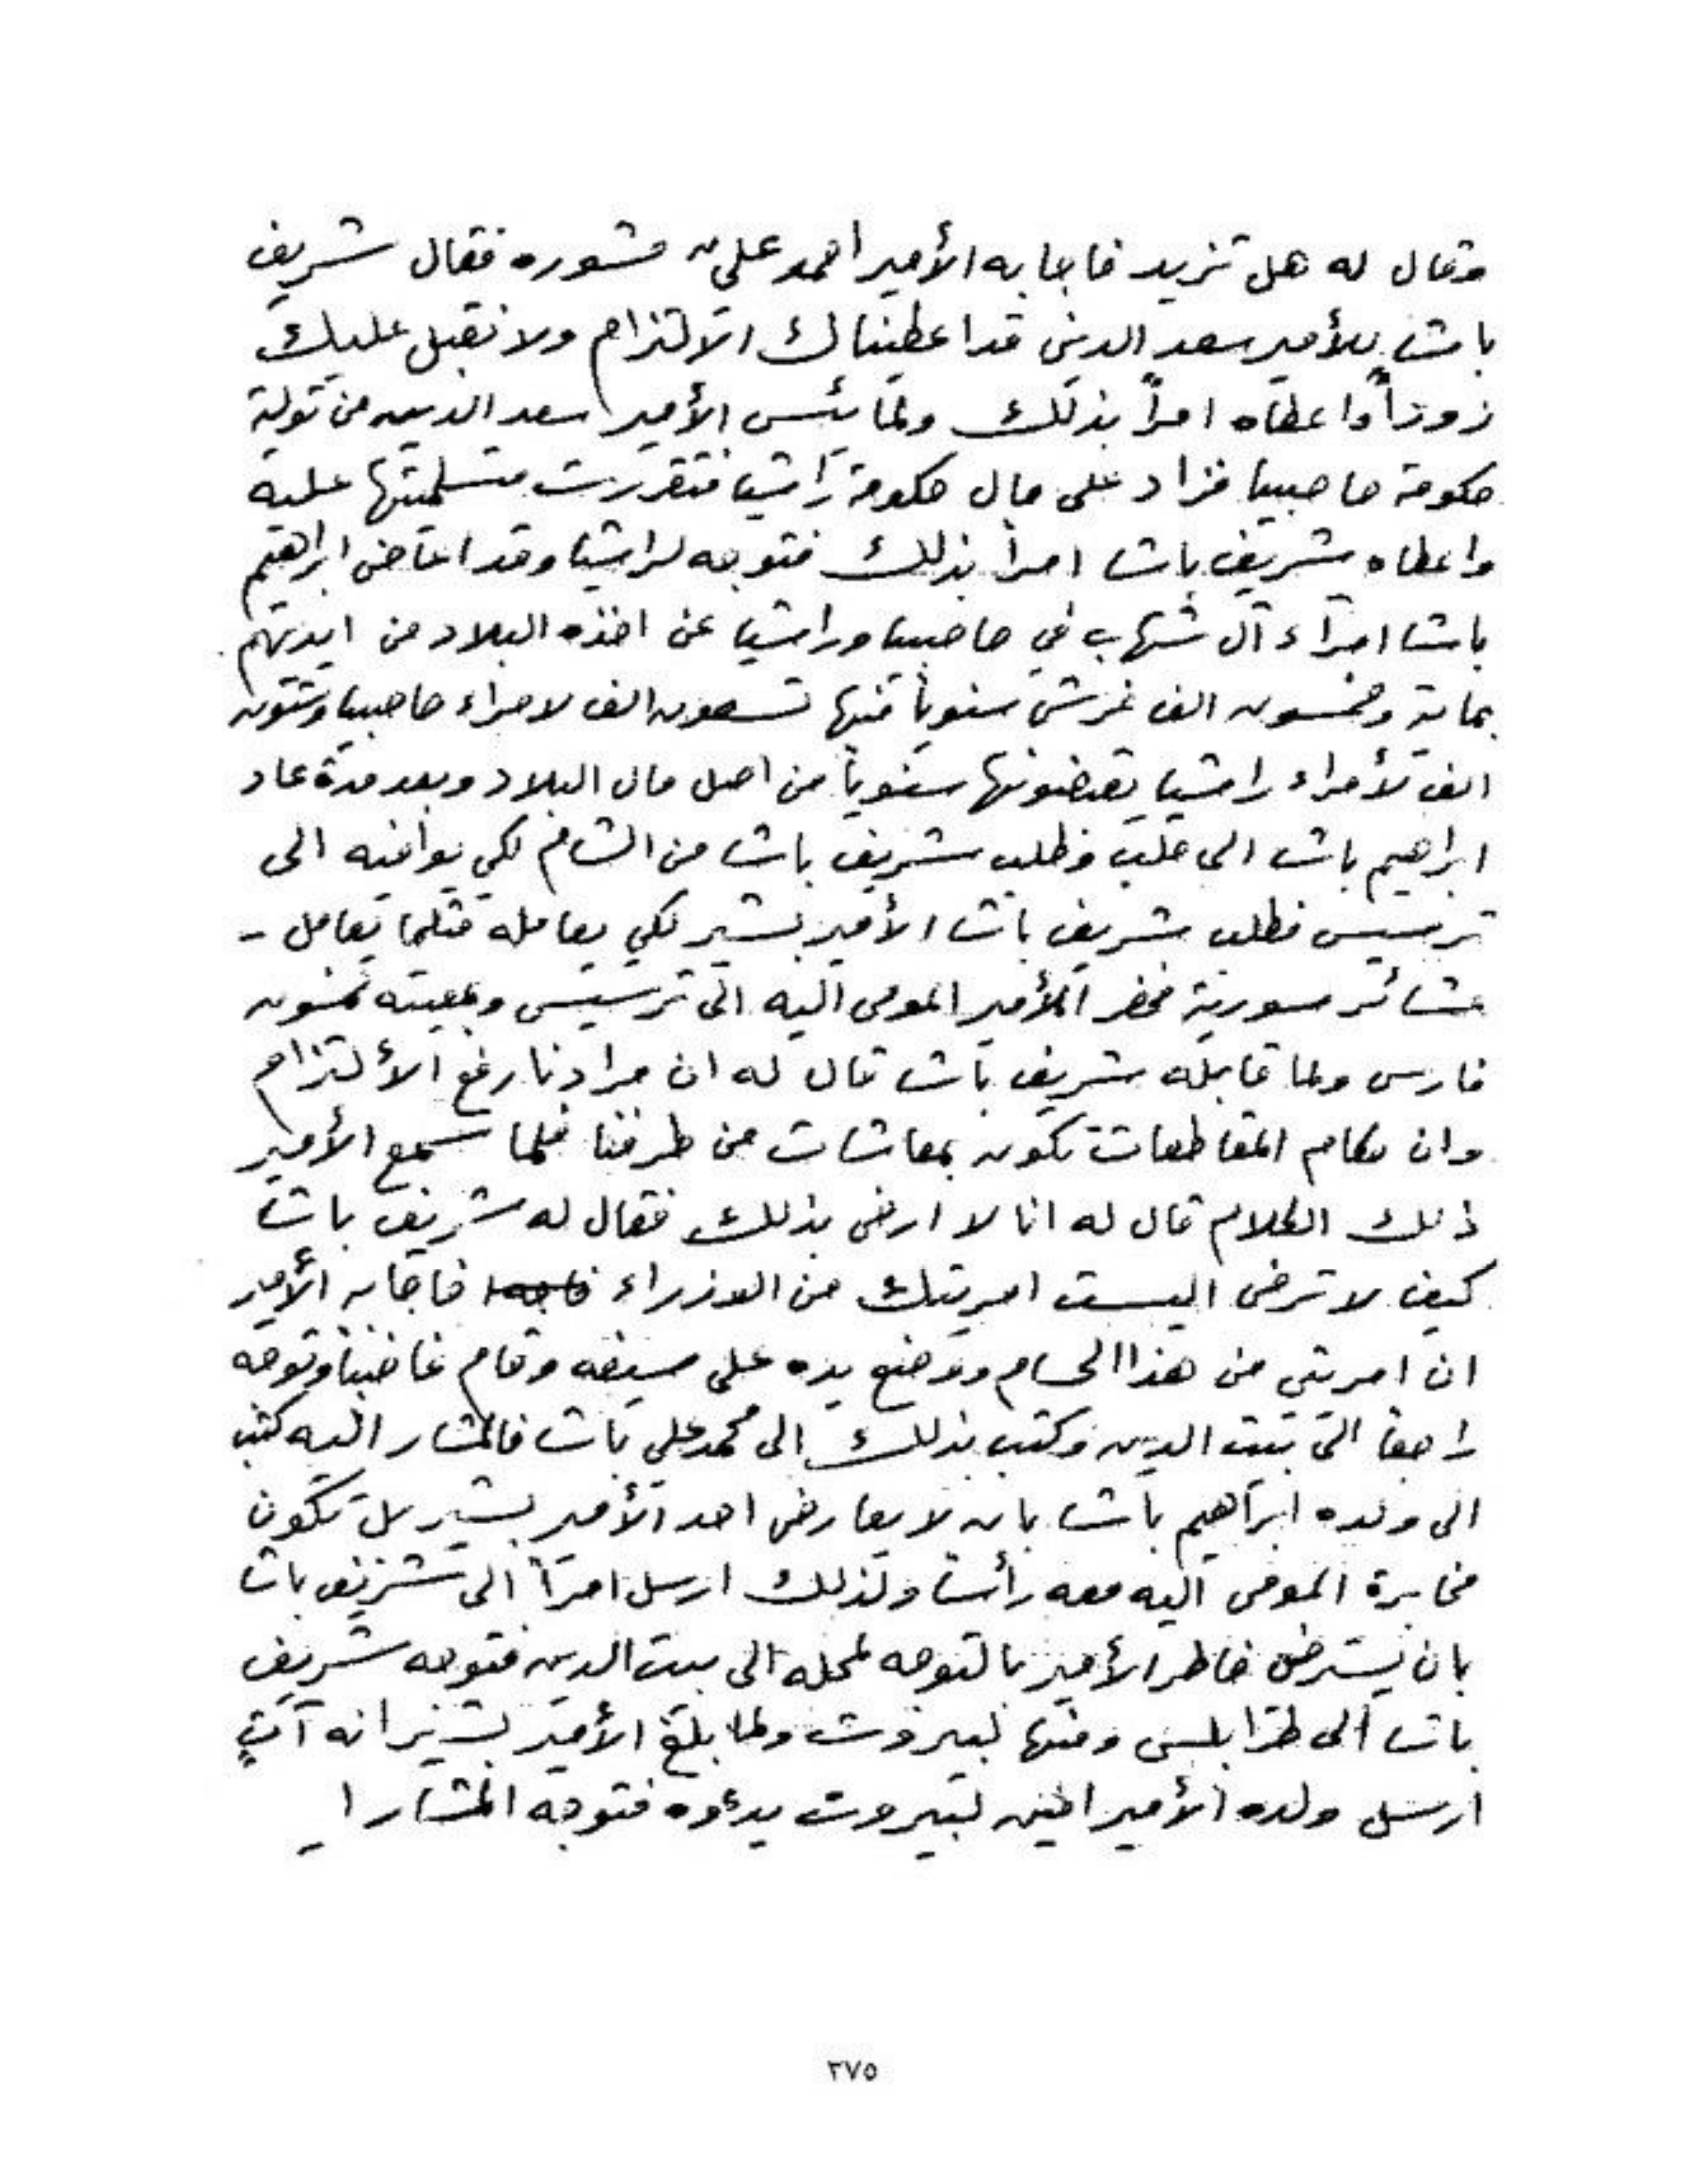 وقال له هل تزيد فاجابه الأمير احمد علي مشوره فقال شريف
باشا للأمير سعد الدين قد اعطيناك الالتزام ولا نقبل عليك
زوداً واعطاه امراً بذلك ولما يئس الأمير سعد الدين من تولية
حكومة حاصبيا فزاد على مال حكومة راشيا فتقررت متسلميتها عليه
واعطاه شريف باشا امراً بذلك فتوجه لراشيا وقد اعاض ابراهيم
باشا امراء آل شهاب في حاصبيا وراشيا عن اخذه البلاد من ايديهم
بماية وخمسون الف غرش سنوياً منها تسعون الف لامراء حاصبيا وستون
الف لأمراء راشيا يقبضونها سنوياً من اصل مال البلاد وبعد مدة عاد
ابراهيم باشا الى حلب وطلب شريف باشا من الشام لكي يوافيه الى
ترسيس فطلب شريف باشا الأمير بشير لكي يعامله مثلما يعامل -
عشائر سورية فحضر الأمير المومى اليه الى ترسيس وبمعيته خمسون
فارس ولما قابله شريف باشا قال له ان مرادنا رفع الألتزام
وان حكام المقاطعات تكون بمعاشات من طرفنا فلما سمع الأمير
ذلك الكلام قال له انا لا ارضى بذلك فقال له شريف باشا
كيف لا ترضى اليست امريتك من الوزراء فاجابه الأمير
ان امريتي من هذا الحسام ووضع يده على سيفه وقام غاضباً وتوجه
راجعاً الى بيت الدين وكتب بذلك الى محمد علي باشا فالمشار اليه كتب
الى ولده ابراهيم باشا بانه لا يعارض احد الأمير بشير بل تكون
مخابرة المومى اليه معه رأساً ولذلك ارسل امراً الى شريف باشا
بان يسترضى خاطر الأمير بالتوجه لمحله الى بيت الدين فتوجه شريف
باشا الى طرابلس ومنها لبيروت ولما بلغ الأمير بشير انه آتٍ
ارسل ولده الأمير امين لبيروت يدعوه فتوجه المشار ا
٢٧٥